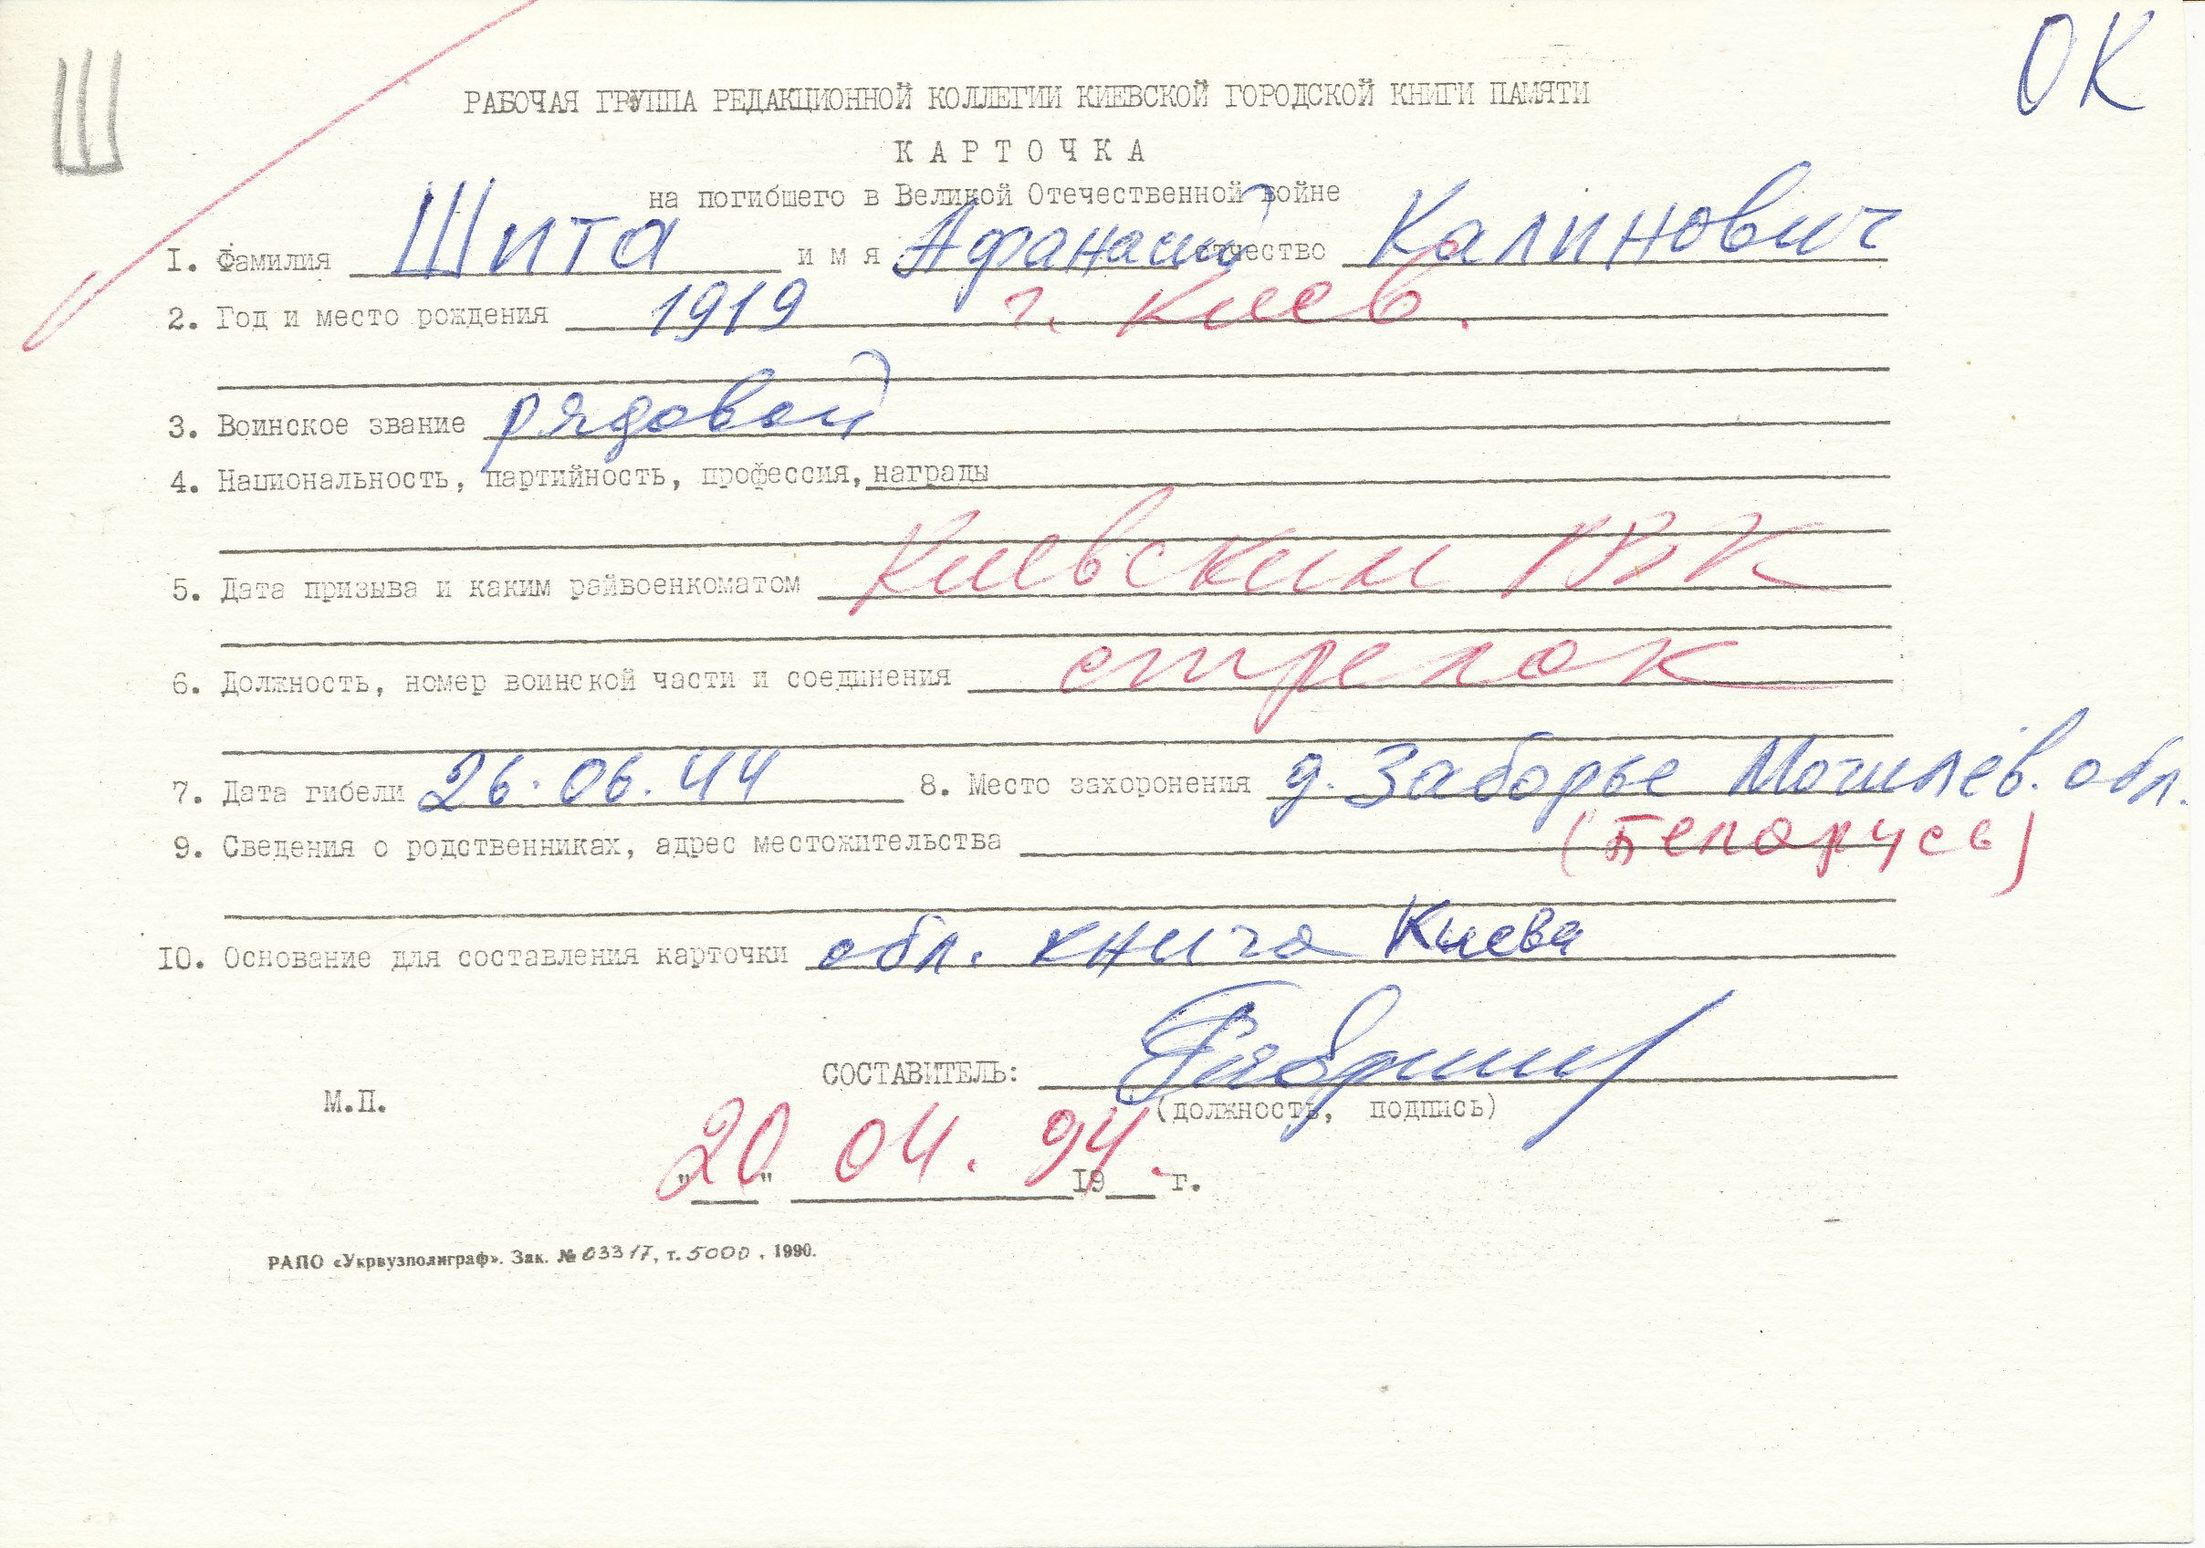 Ш
ОК
РАБОЧАЯ ГРУППА РЕДАКЦИОННОЙ КОЛЛЕГИИ КИЕВСКОЙ ГОРОДСКОЙ КНИГИ ПАМЯТИ
К А Р Т О Ч К А
на погибшего в Великой Отечественной войне
I. Фамилия Шита и м я Афанасий отчество Калинович
2. Год и место рождения 1919 г. Киев.
3. Воинское звание рядовой
4. Национальность, партийность, профессия, награды
5. Дата призыва и каким райвоенкоматом Киевским РВК
6. Должность, номер воинской части и соединения стрелок
7. Дата гибели 26.06.44 8. Место захоронения д. Заборье Могилёв. обл.
9. Сведения о родственниках, адрес местожительства (Беларусь)
10. Основание для составления карточки обл. книга Киева
СОСТАВИТЕЛЬ:
М.П.
(должность, подпись)
"20" 04. 94. 19__ г.
РАПО «Укрвузполиграф». Зак. № 03317, т. 5000, 1990.